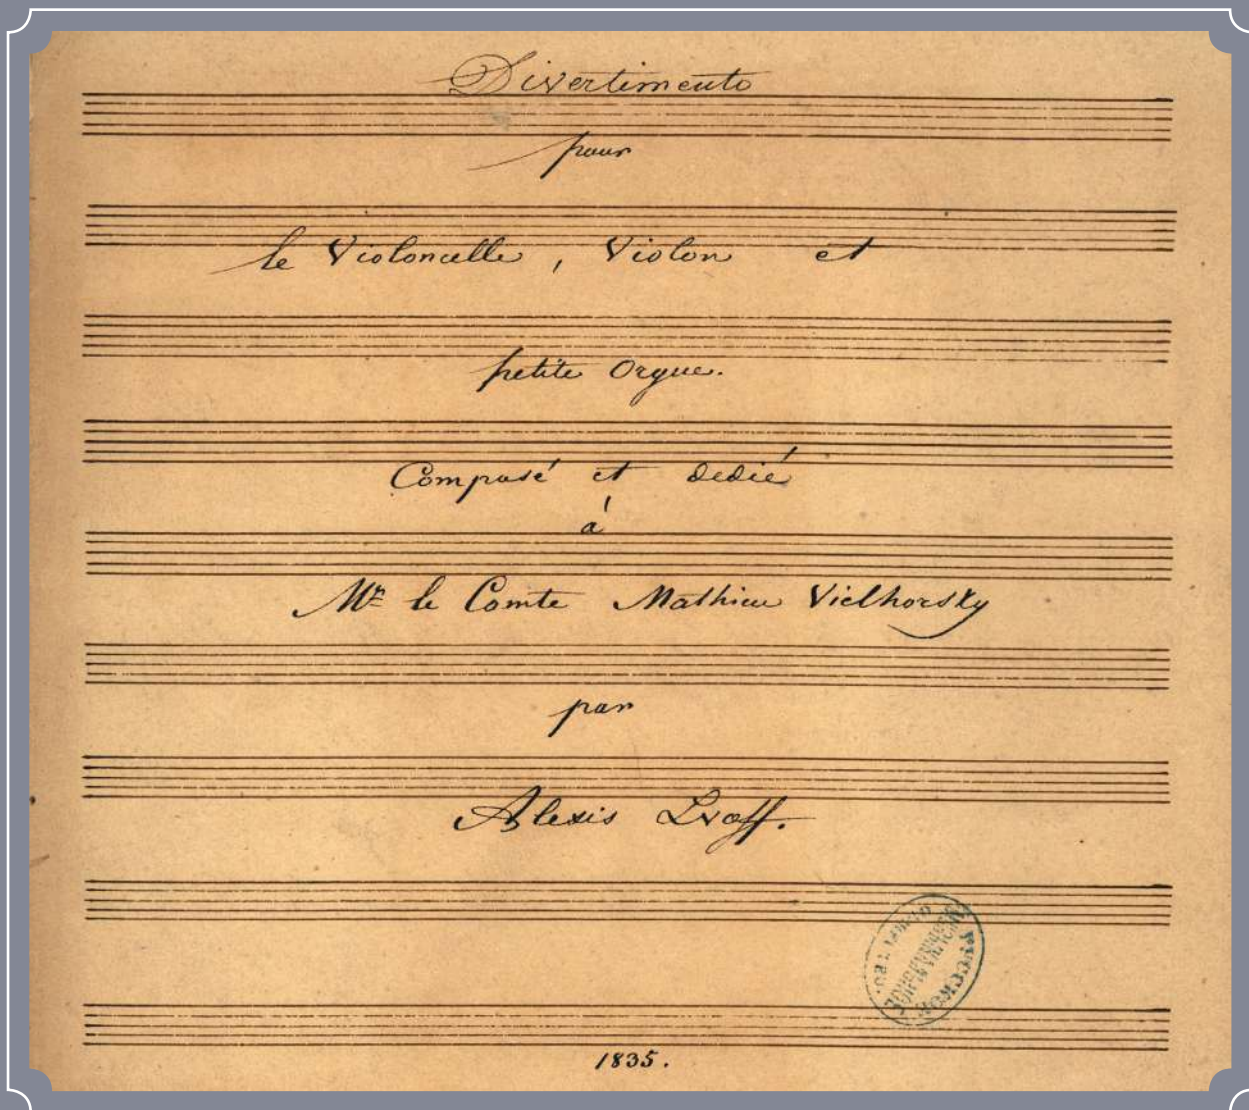 Divertimento
pour
le Violoncelle, Violon et
petite Orgue.
Composé et dedié
à
Mr le Comte Mathieu Vielhorsky
par
Alexis Lvoff.
1835.